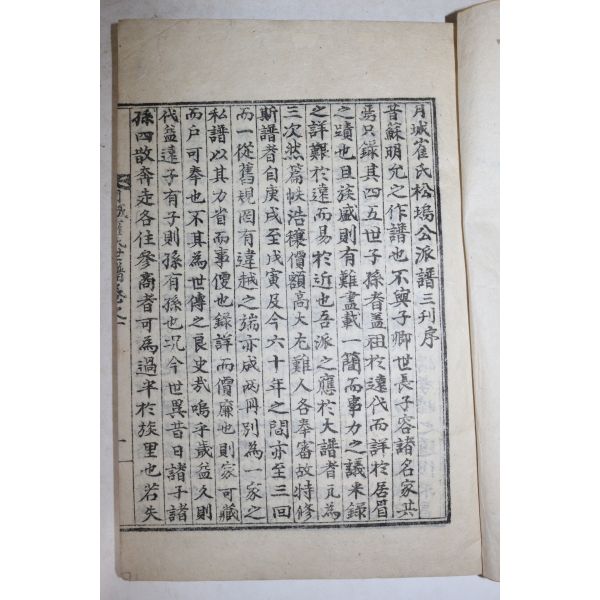 月城崔氏松塢公派譜三刊序
昔蘇明允之作譜也不與子卿世長子容諸名家共
焉只錄其四五世子孫者盖祖於遠代而詳於居眉
之蹟也且族盛則有難盡載一簡而事力之議采録
之詳艱於遠而易於近也吾派之應於大譜者凡為
三次然篇帙浩穰價額高大尤難人各奉審故特修
斯譜者自庚戌至戊寅及今六十年之間亦至三回
而一從舊規罔有違越之端亦成兩冊別為一家之
私譜以其力省而事便也録詳而價廉也則家可藏
而户可奉也不其為世傳之良史哉嗚乎歲益久則
代益遠子有子則孫有孫也况今世異昔日諸子諸
孫四散奔走各住參商者可為過半於族里也若失
月城崔氏世譜卷之一